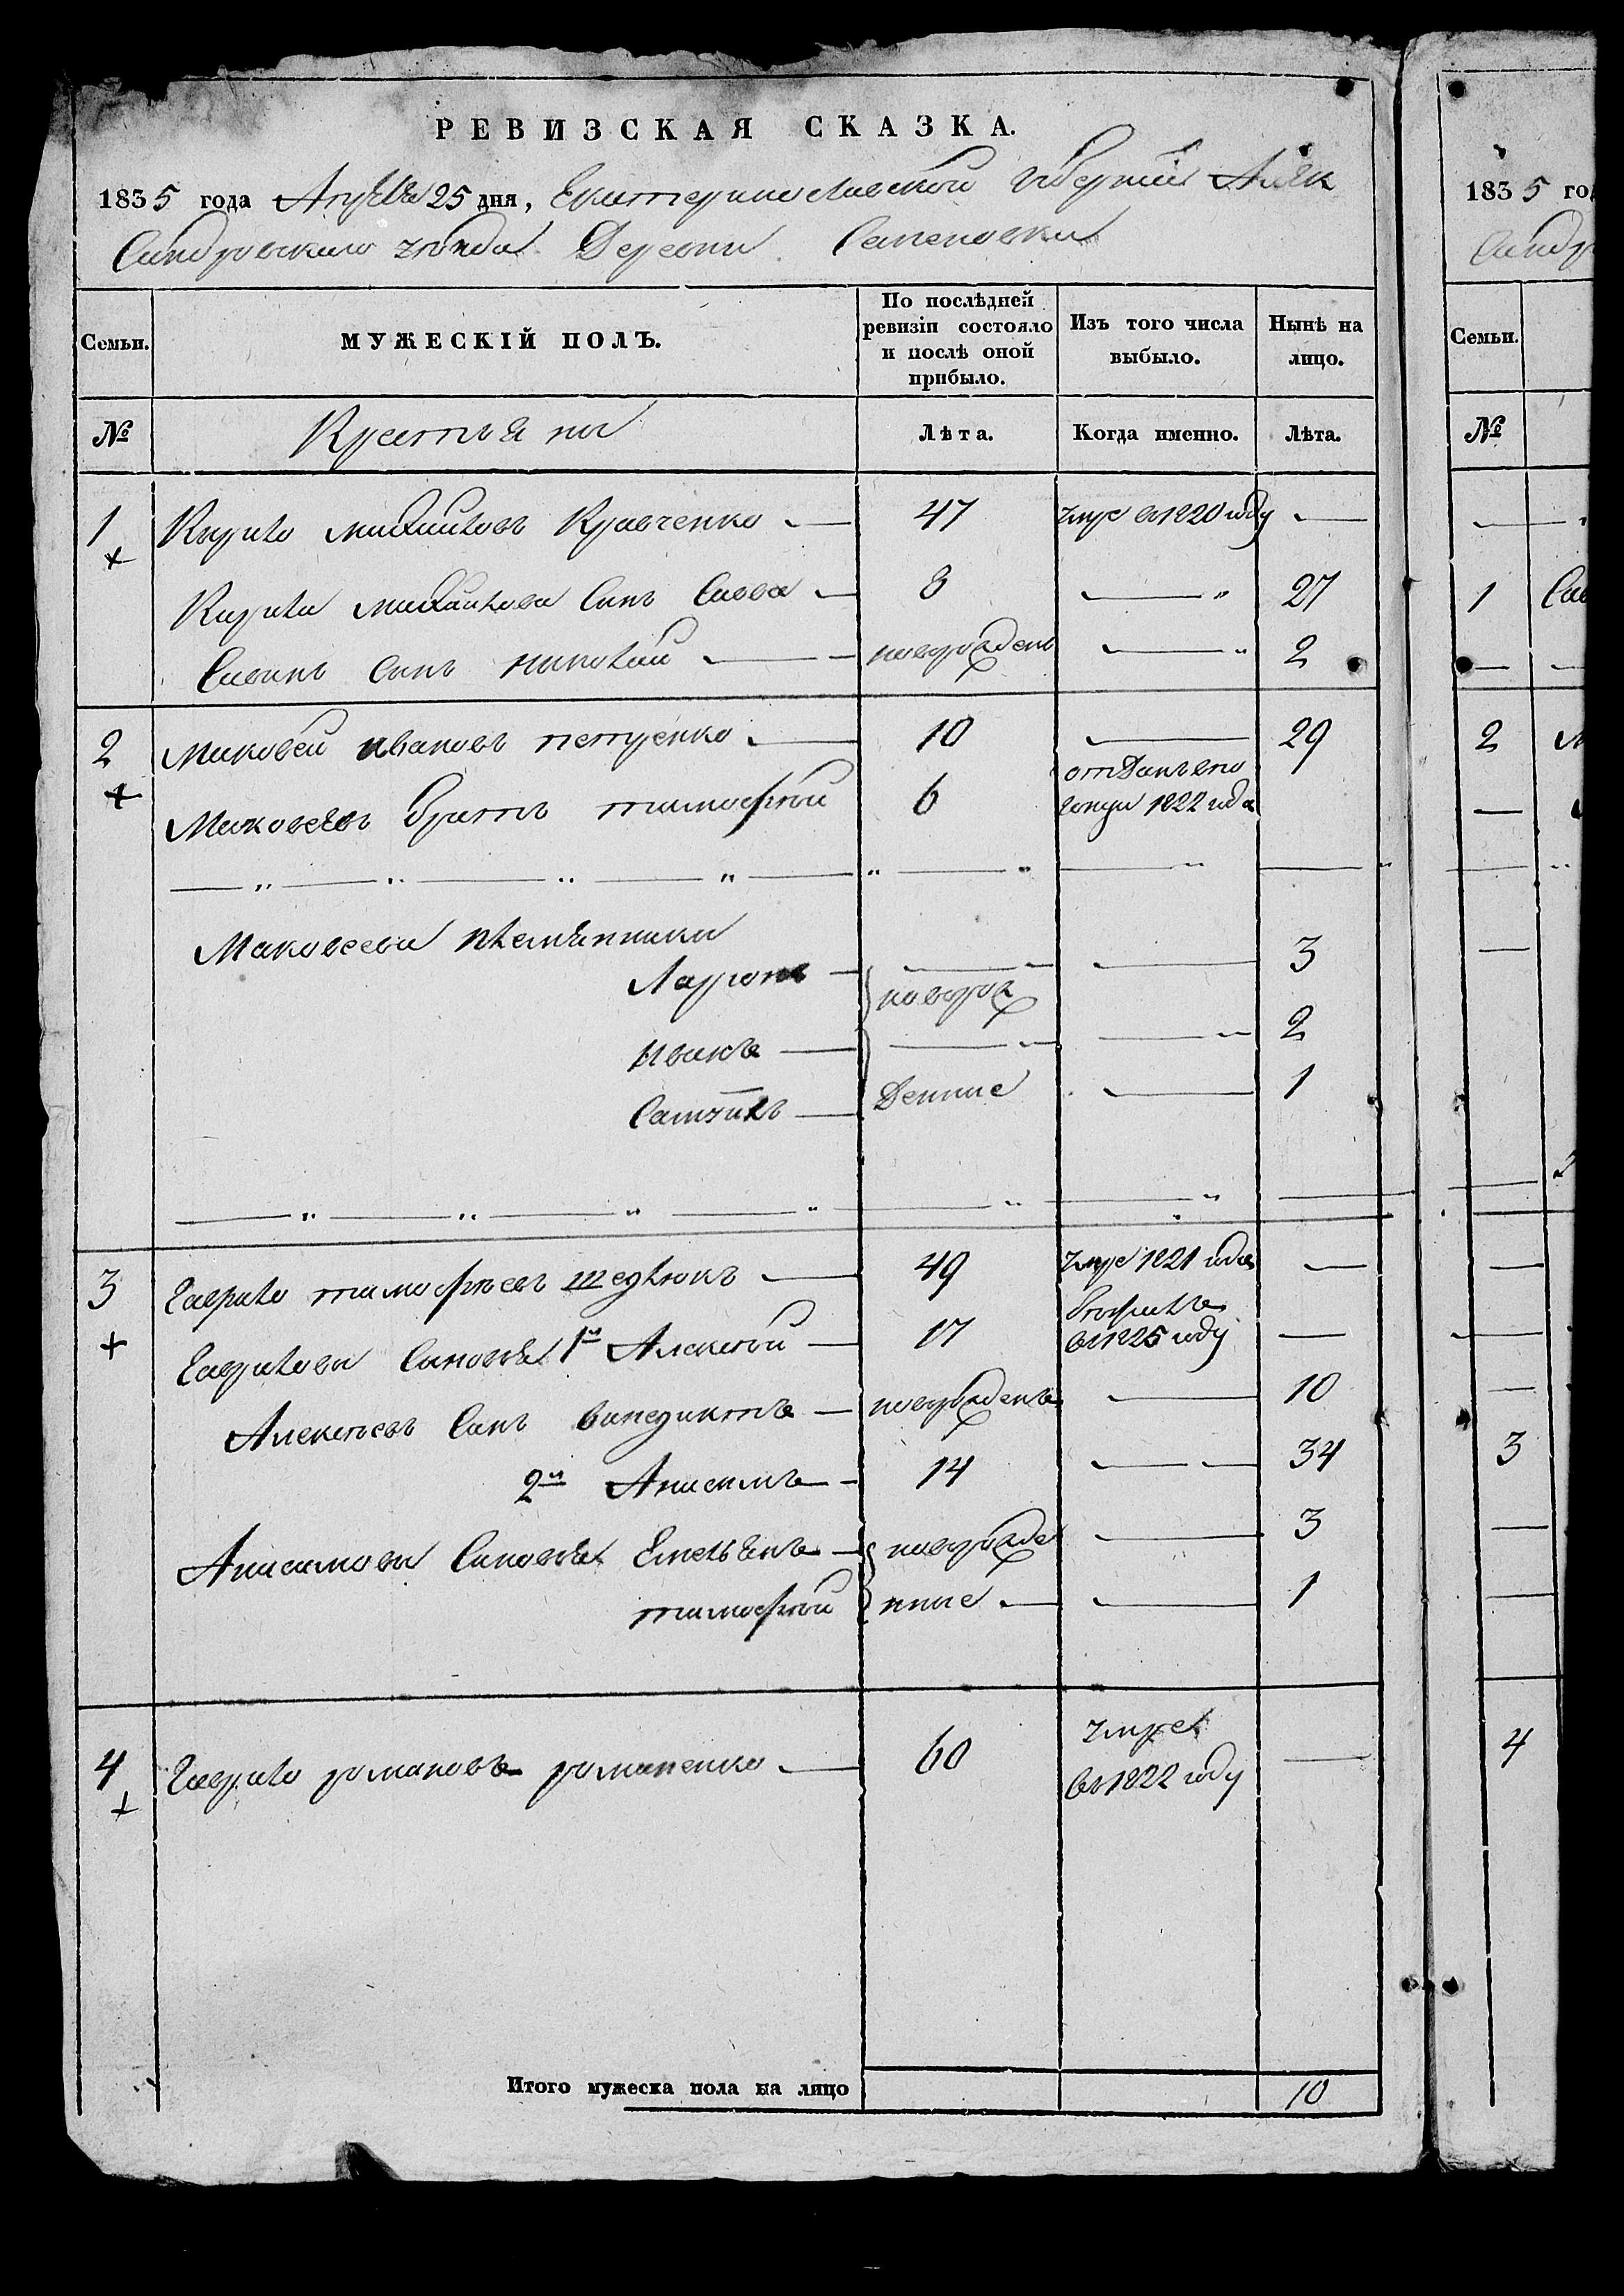 РЕВИЗСКАЯ СКАЗКА.
1835 года Апреля 25 дня, Екатеринославской губернии Алек
сандровскаго уезда Деревни Семеновки
Семьи. МУЖЕСКІЙ ПОЛЪ. По послѣдней ревизіи состояло и послѣ оной прибыло. Изъ того числа выбыло. Нынѣ на лицо.
№ Крестьяны Лѣта. Когда именно. Лѣта.
1 Кирило михайловъ Кравченко 47 умре въ 1820 году —
Кирила михайлова Сынъ Савва 8 — 27
Савинъ Сынъ николай новорожденъ — 2
2 маковей ивановъ петренко 10 — 29
маковеевъ братъ тимофей 6 отданъ 1822 года
Маковеева племянники
Ларионъ — 3
новорож
иванъ — 2
денние — 1
3 Гаврило тимофеевъ 49 умре 1821 года —
Гавриловы Сыновя 1й Алексей 17 въ 1825 году —
Алексеевъ Сынъ винедиктъ новорожденъ — 10
2й Анисимъ 14 — 34
Анисимовы Сыновя Емельянъ новорожде — 3
тимофей нние — 1
4 Гаврило романовъ романенко 60 умре —
въ 1822 году
Итого мужеска пола на лицо 10
1835 год
Сандр
Семьи.
№
1 Сав
2 М
3
4